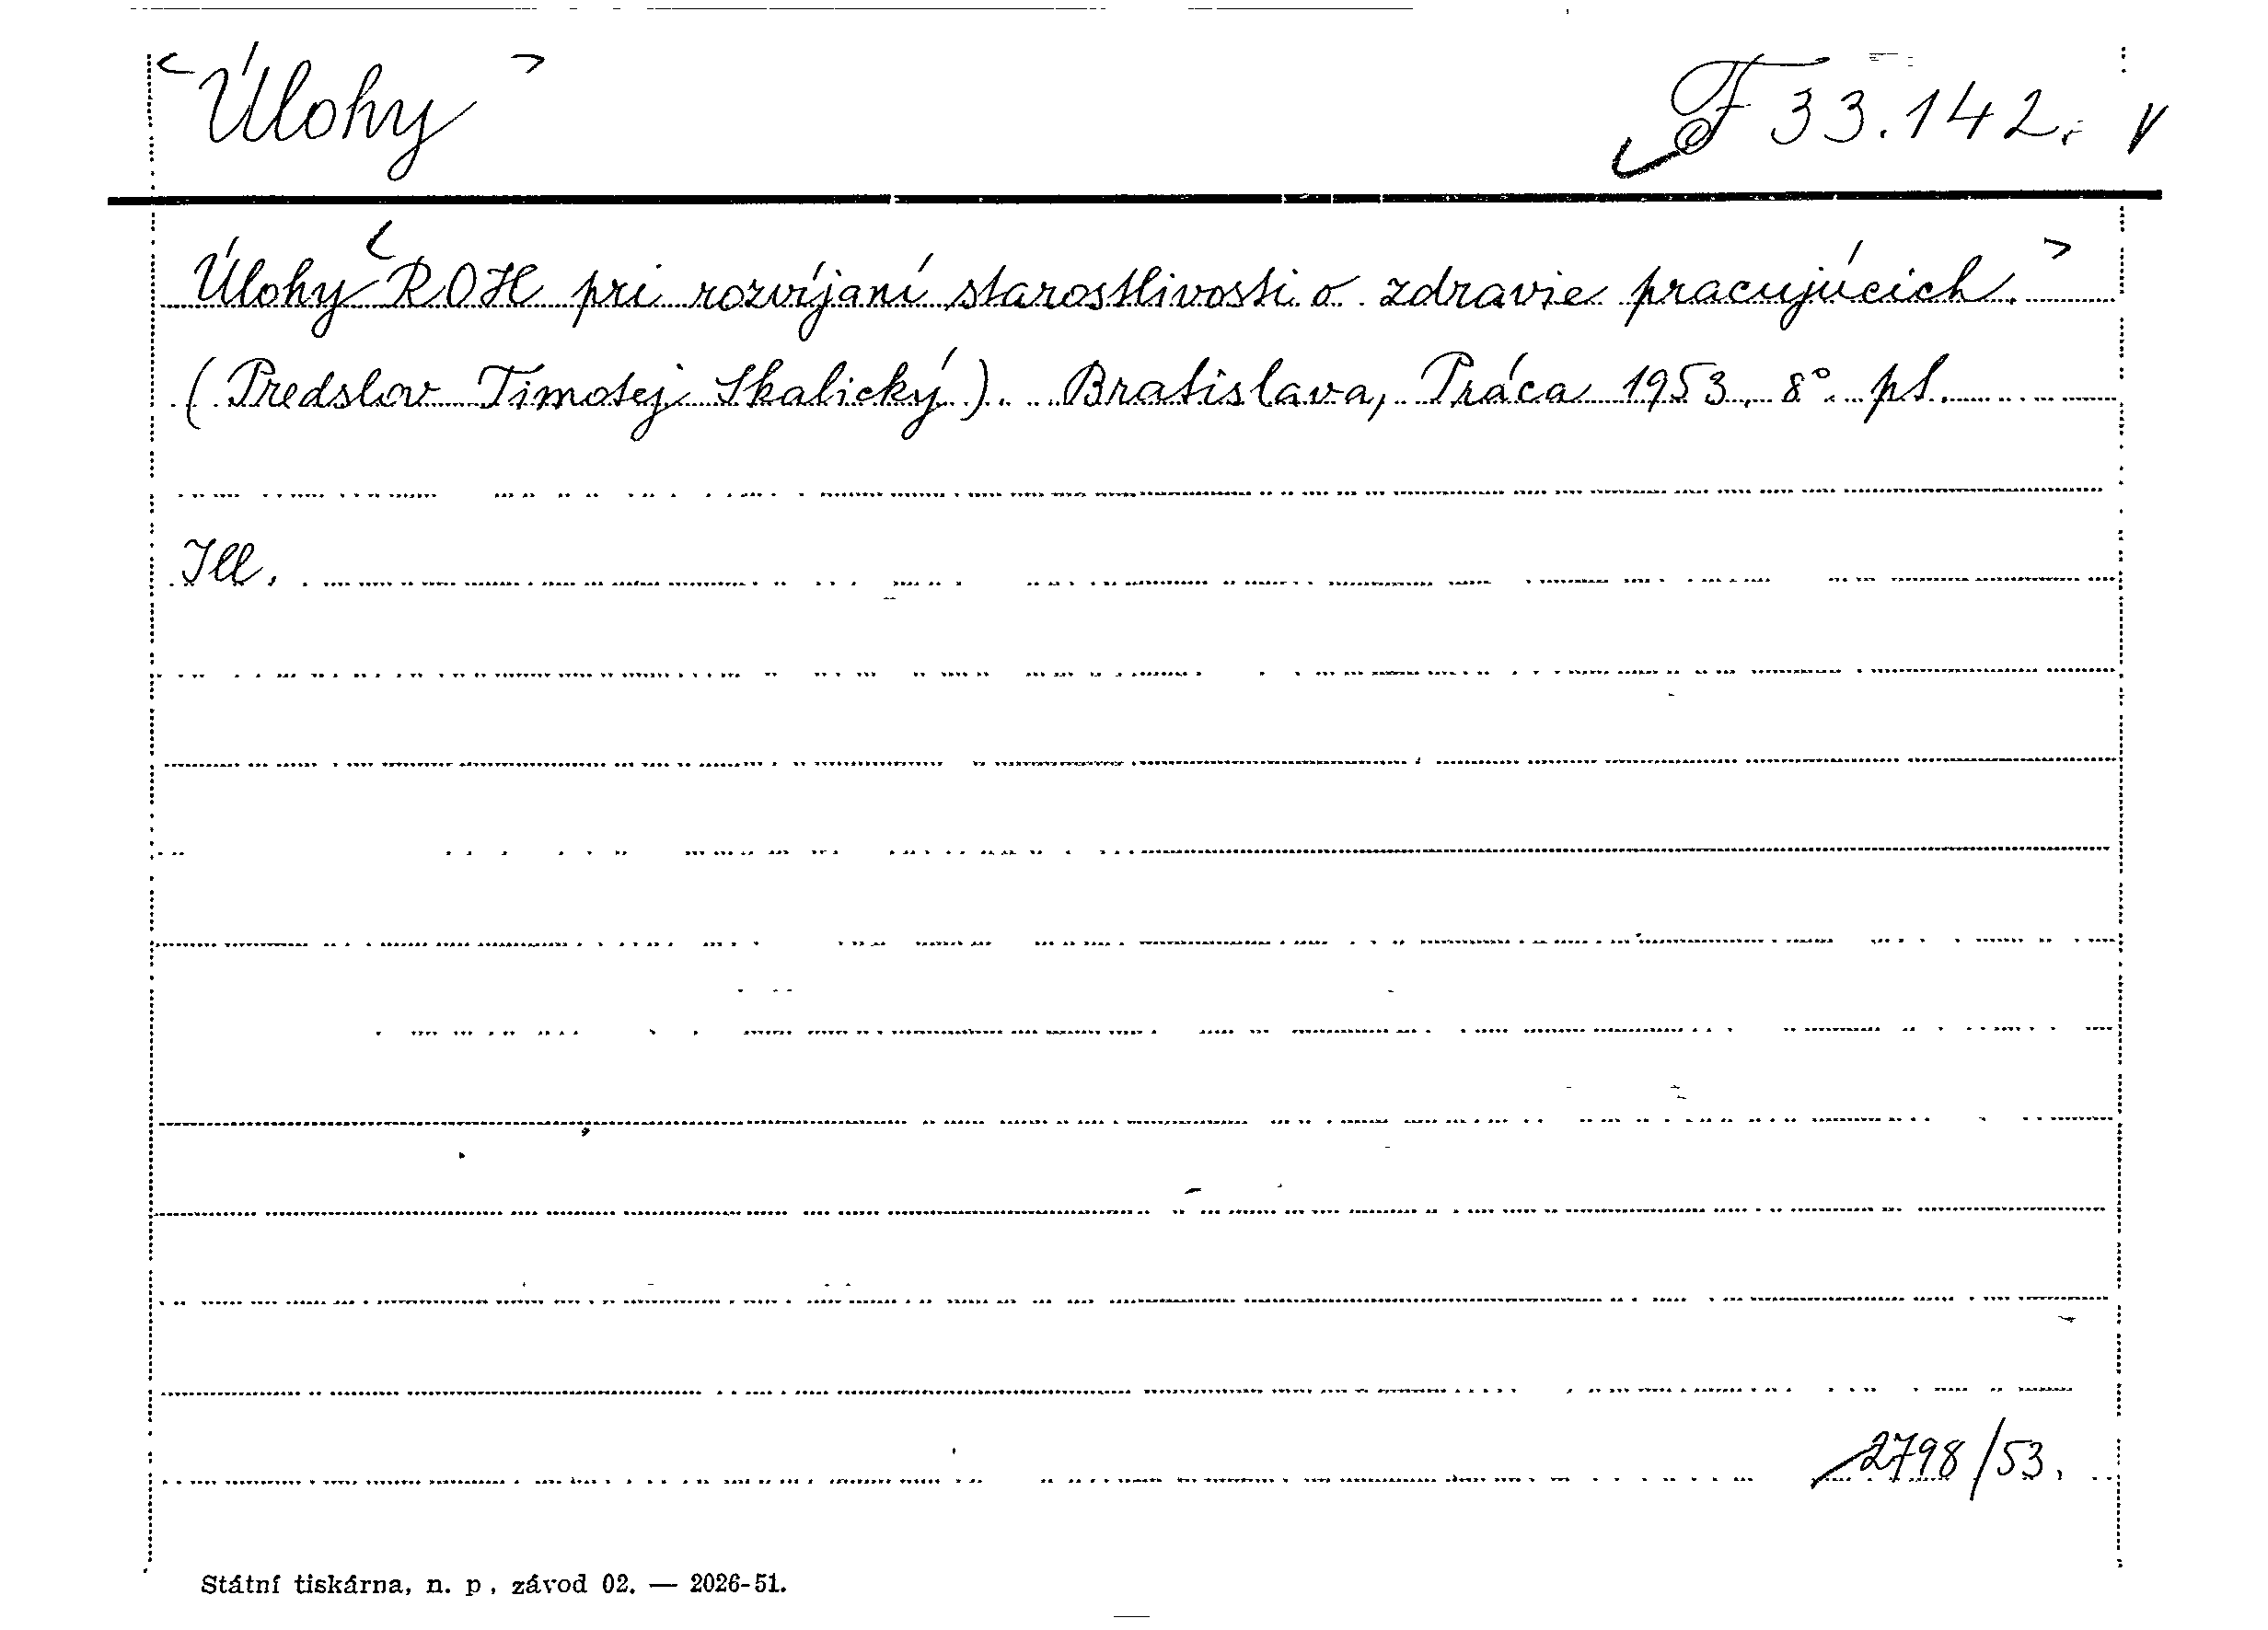 <Úlohy> F 33.142.
Úlohy <ROH pri rozvíjaní starostlivosti o zdravie pracujúcich.>
(Predslov Timotej Skalický). Bratislava, Práca 1953. 8°. pl.
Ill.
2798/53.
Státní tiskárna, n. p., závod 02. — 2026-51.